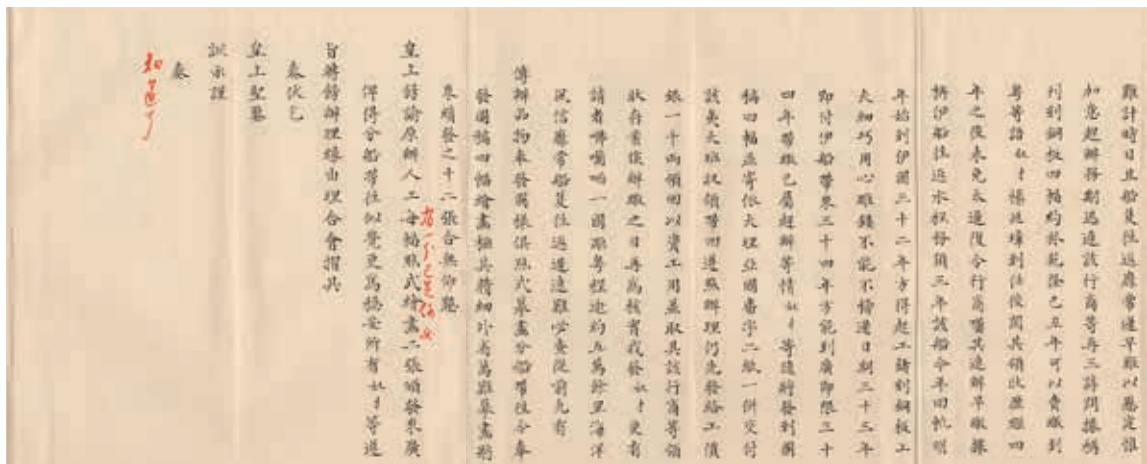 難計時日且船隻往返應常遲早難以懸定惟
如意趕辦務期迅速該行商等再三詳詢據稱
刊刻銅板四幅約於乾隆己丑年可以賣繳到
粵等語奴才楊廷璋到任後閱其領狀歷經四
年之後未免太遲復令行商囑其速辦早繳據
稱伊船往返水程務須三年該船今年回帆明
年始到伊國三十二年方得起工鐫刻銅板工
夫細巧用心雕鏤不能不稽遲日期三十三年
即付伊船帶來三十四年方能到廣即限三十
四年帶繳已屬趕辦等情奴才等隨將發到圖
稿四幅並寄依大理亞國番字二紙一併交付
該夷大班收領帶回遵照辦理仍先發給工價
銀一千兩領回以資工用並取具該行商等領
狀存案俟辦繳之日再為核實找發奴才更有
請者咈囒哂一國離粵程途約五萬餘里海洋
風信靡常船隻往返遲速難必查從前凡有
傳辦品物奉發圖樣俱照式摹畫分船帶往今奉
發圖稿四幅繪畫極其精細外省萬難摹畫將
來續發之十二張合無仰懇
皇上飭諭原辦人工每幅照式繪畫二張頒發來廣
俾得分船帶往似覺更為穩妥所有奴才等遵
旨轉飭辦理緣由理合會摺具
奏伏乞
皇上聖鑒
訓示謹
奏
知道了